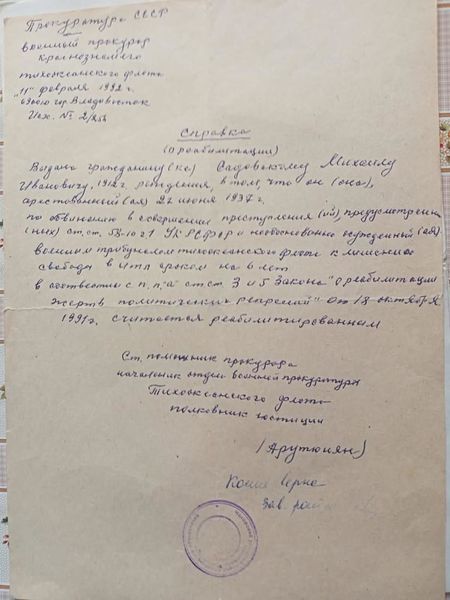 Прокуратура СССР
Военный прокурор
Краснознамего
тихоокеанского флота
"11" февраля 1992 г.
690010 гор. Владивосток
Исх. №
Справка
(о реабилитации)
Выдана гражданину(ке) Садовскому Михаилу
Ивановичу, 1912 г. рождения, в том, что он (она),
арестованный (ая) 22 июня 1937 г.
по обвинению в совершении преступления (ий), предусмотрен
(них) ст. ст. 58-10 ч 1 УК РСФСР и необоснованно осужденный (ая)
военным трибуналом тихоокеанского флота к лишению
свободы в ИТЛ сроком на 6 лет
в соответствии с п. "а" ст ст. 3 и 5 Закона "О реабилитации
жертв политических репрессий" от 18 октября
1991 г. считается реабилитированным
Ст. помощник прокурора
начальник отдела военной прокуратуры
Тихоокеанского флота
полковник юстиции
(Арутюнян)
Копия верна
Зав.